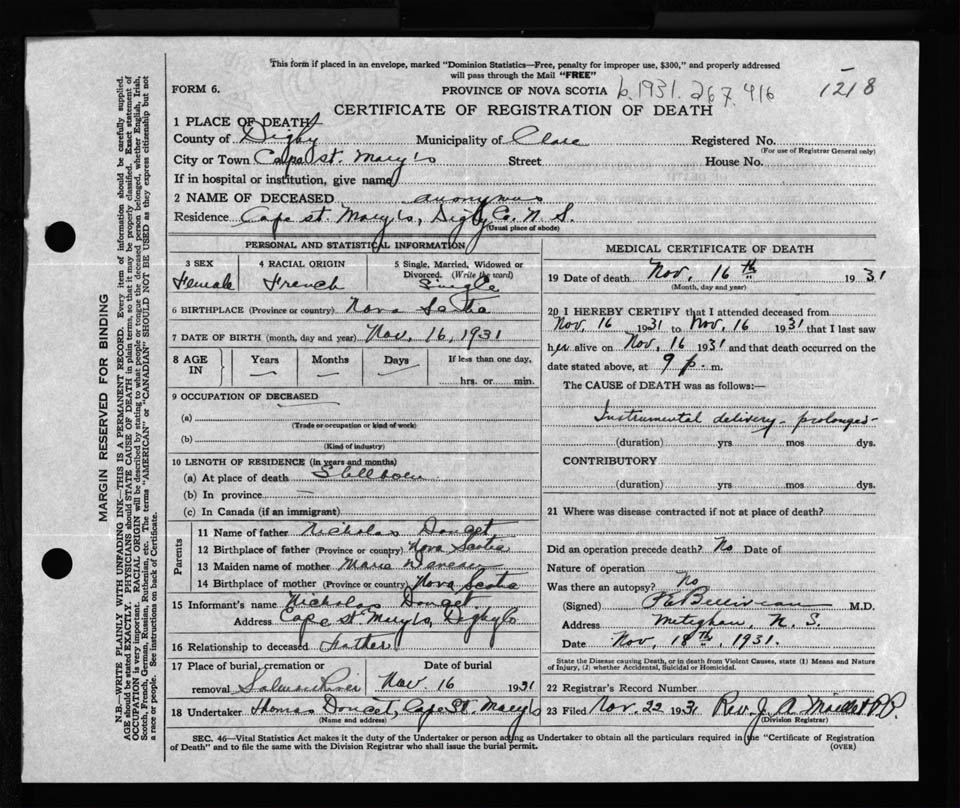 This form if placed in an envelope, marked "Dominion Statistics—Free, penalty for improper use, $300," and properly addressed
will pass through the Mail "FREE"
FORM 6.
PROVINCE OF NOVA SCOTIA
b.1931.267.916
1218
CERTIFICATE OF REGISTRATION OF DEATH
1 PLACE OF DEATH
County of Digby Municipality of Clare Registered No.
(For use of Registrar General only)
City or Town Cape St. Mary's Street House No.
If in hospital or institution, give name
2 NAME OF DECEASED anonymous
Residence Cape St. Mary's, Digby Co. N. S.
(Usual place of abode)
PERSONAL AND STATISTICAL INFORMATION
3 SEX 4 RACIAL ORIGIN 5 Single, Married, Widowed or
Divorced. (Write the word)
Female French Single
6 BIRTHPLACE (Province or country) Nova Scotia
7 DATE OF BIRTH (month, day and year) Nov. 16, 1931
8 AGE IN Years Months Days If less than one day,
hrs. or min.
9 OCCUPATION OF DECEASED
(a)
(Trade or occupation or kind of work)
(b)
(Kind of industry)
10 LENGTH OF RESIDENCE (in years and months)
(a) At place of death Stillborn
(b) In province —
(c) In Canada (if an immigrant)
Parents
11 Name of father Nicholas Doucet
12 Birthplace of father (Province or country) Nova Scotia
13 Maiden name of mother Marie
14 Birthplace of mother (Province or country) Nova Scotia
15 Informant's name Nicholas Doucet
Address Cape St Mary's, Digby Co
16 Relationship to deceased Father
17 Place of burial, cremation or Date of burial
removal Salmon River Nov. 16 1931
18 Undertaker Thomas Doucet, Cape St. Mary's
(Name and address)
MEDICAL CERTIFICATE OF DEATH
19 Date of death Nov. 16th 1931
(Month, day and year)
20 I HEREBY CERTIFY that I attended deceased from
Nov. 16 1931 to Nov. 16 1931 that I last saw
her alive on Nov. 16 1931 and that death occurred on the
date stated above, at 9 p. m.
The CAUSE of DEATH was as follows:—
Instrumental delivery - prolonged
(duration) yrs mos dys.
CONTRIBUTORY
(duration) yrs mos dys.
21 Where was disease contracted if not at place of death?
Did an operation precede death? No Date of
Nature of operation
Was there an autopsy? No
(Signed) Belliveau M.D.
Address Meteghan, N. S.
Date Nov. 18th, 1931.
State the Disease causing Death, or in death from Violent Causes, state (1) Means and Nature
of Injury, (2) whether Accidental, Suicidal or Homicidal.
22 Registrar's Record Number
23 Filed Nov. 22 1931 Rev. J. A. P.P.
(Division Registrar)
SEC. 46—Vital Statistics Act makes it the duty of the Undertaker or person acting as Undertaker to obtain all the particulars required in the "Certificate of Registration
of Death" and to file the same with the Division Registrar who shall issue the burial permit.
(OVER)
MARGIN RESERVED FOR BINDING
N.B.—WRITE PLAINLY WITH UNFADING INK—THIS IS A PERMANENT RECORD. Every item of information should be carefully supplied.
AGE should be stated EXACTLY. PHYSICIANS should STATE CAUSE OF DEATH in plain terms, so that it may be properly classified. Exact statement of
OCCUPATION is very important. RACIAL ORIGIN will be described by stating to what people or tongue the deceased person belonged, whether English, Irish,
Scotch, French, German, Russian, Ruthenian, etc. The terms "AMERICAN" or "CANADIAN" SHOULD NOT BE USED as they express citizenship but not
a race or people. See instructions on back of Certificate.